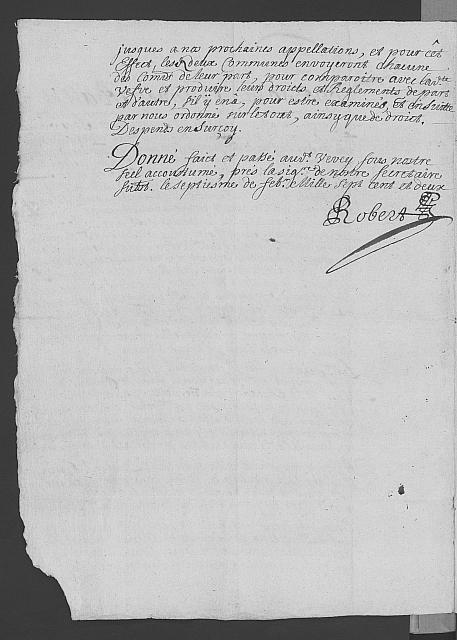 jusques a nos prochaines appellations, et pour cet
Effect, les deux Communes envoyeront chacune
des Comis de leur part, pour comparoitre avec lad.te
Vefve et produire leurs droicts, et Reglements de part
et d'autre, s'il y en a, pour estre examinés, et en suitte
par nous ordonné sur le tout, ainsy que de droict.
Despends en surçoy.
Donné faict et passé aud.t Vevey sous nostre
seel accoustumé, pres la sig.re de nostre secretaire
subst. le septiesme de feb.r Mille sept cent et deux
Robert